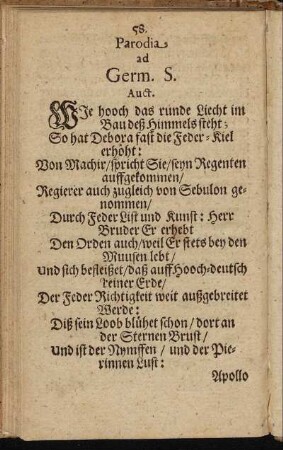 58.
Parodia
ad
Germ. S.
Auct.
WJe hooch das runde Liecht im
Bau deß Himmels steht;
So hat Debora fast die Feder-Kiel
erhöht:
Von Machir/spricht Sie/seyn Regenten
auffgekommen/
Regierer auch zugleich von Sebulon ge-
nommen/
Durch Feder List und Kunst: Herr
Bruder Er erhebt
Den Orden auch/weil Er stets bey den
Muusen lebt/
Und sich befleißet/daß auff Hooch-deutsch
reiner Erde/
Der Feder Richtigkeit weit außgebreitet
Werde:
Diß sein Loob blühet schon/dort an
der Sternen Brust/
Und ist der Nymffen/und der Pie-
rinnen Lust:
Apollo